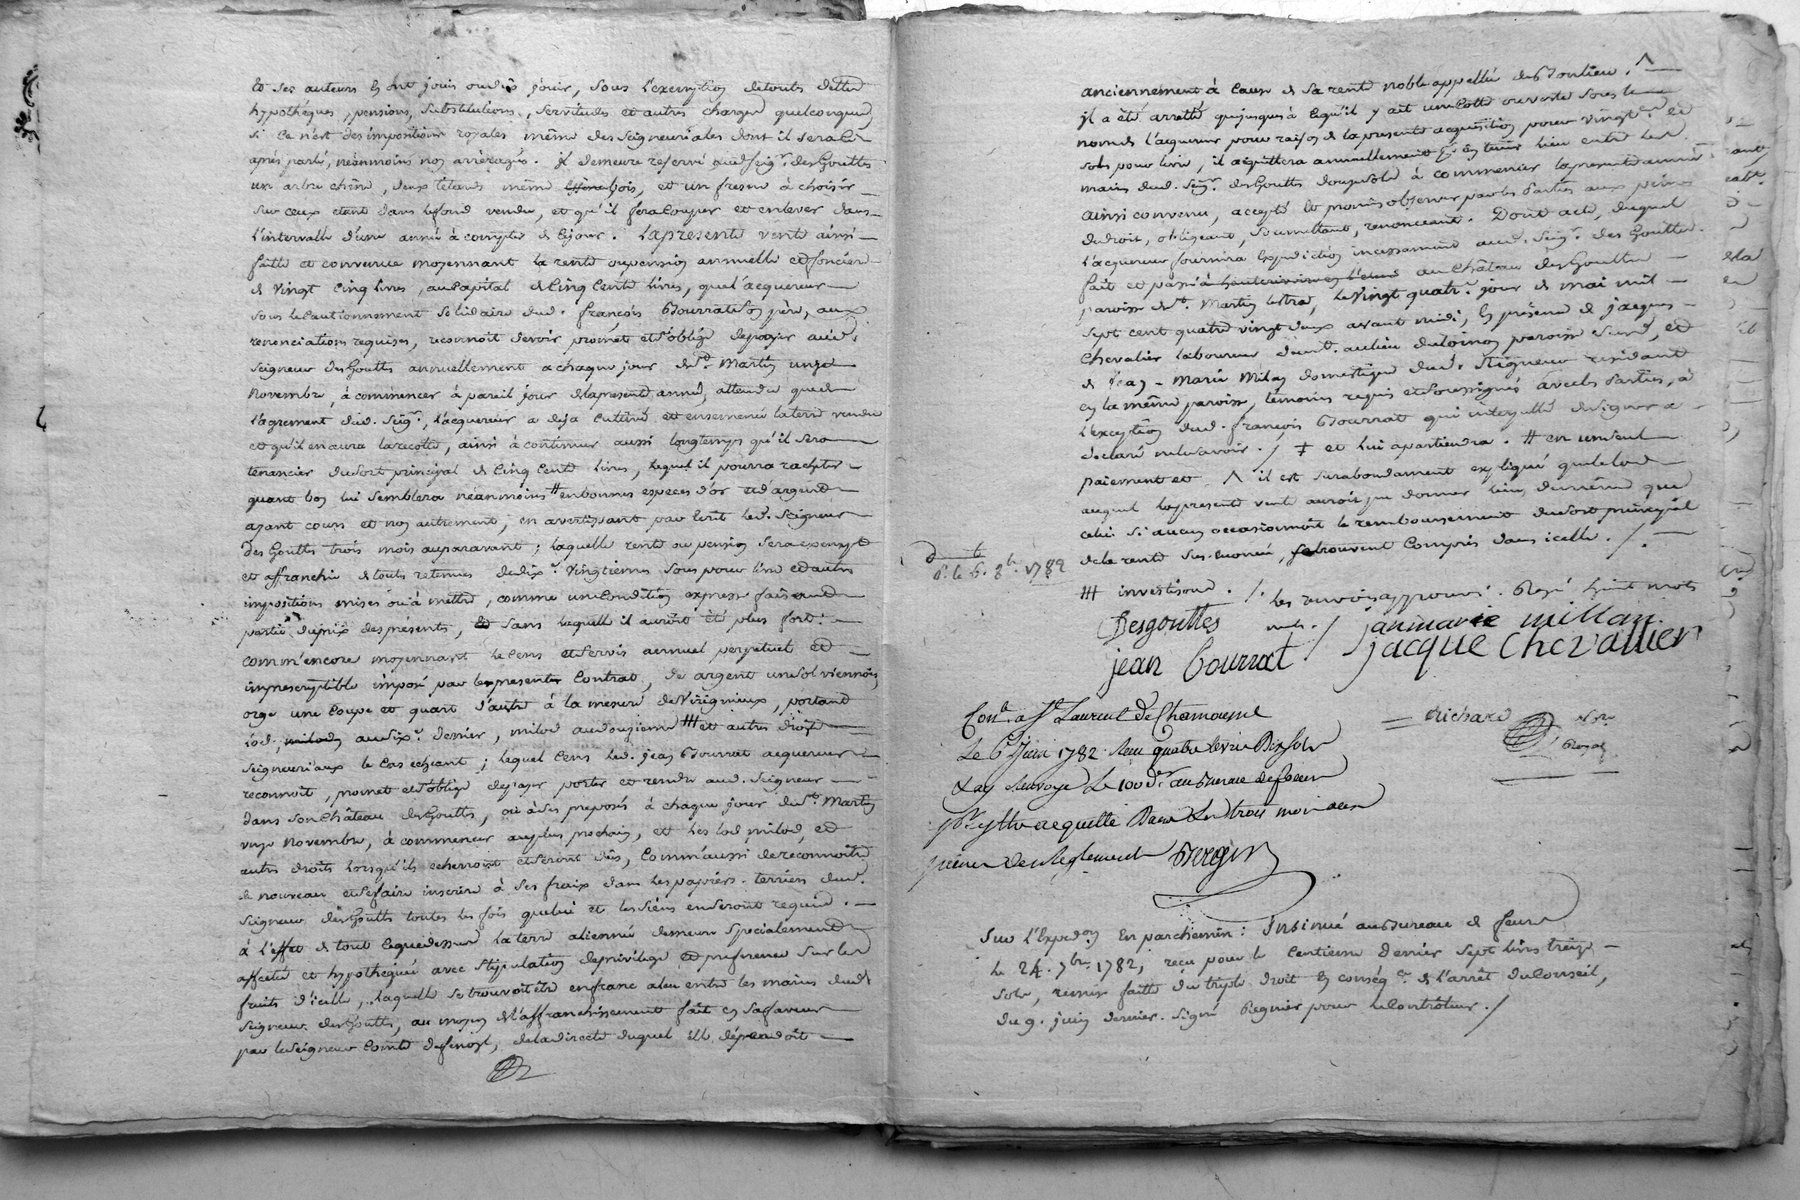 et ses auteurs en ont joui ou dû jouir, sous l'exemption de toutes dettes
hypothèques, pensions, substitutions, servitudes et autres charges quelconques
si ce n'est des impositions royales même des seigneuriales dont il sera ci
après parlé, néanmoins non arréragés. il demeure reservé aud. seigr. des Gouttes
un arbre chêne, deux têtards même bois, et un fresne à choisir
sur ceux étant dans le fond vendu, et qu'il fera couper et enlever dans
l'intervalle d'une année à compter de ce jour. La presente vente ainsi
faitte et convenue moyennant la rente ou pension annuelle et foncière
de vingt cinq livres, au capital de cinq cents livres, que l'acquereur
sous le cautionnement solidaire dud. françois Bourrat son père, aux
renonciations requises, reconnoit devoir promet et s'oblige de payer aud.
seigneur des Gouttes annuellement a chaque jour de St. Martin onze
Novembre, à commencer à pareil jour de la presente année, attendu que de
l'agrement dud. seigr., l'acquereur a deja cultivé et ensemencé la terre vendue
et qu'il en aura la recolte, ainsi à continuer aussi longtemps qu'il sera
tenancier du sort principal de cinq cents livres, lequel il pourra racheter
quant bon lui semblera néanmoins # en bonnes especes d'or et d'argent
ayant cours et non autrement, en avertissant par ecrit led. seigneur
des Gouttes trois mois auparavant; laquelle rente ou pension sera exempte
et affranchie de toutes retenues de dixe. vingtiemes sous pour livre et autres
impositions mises ou à mettre, comme une condition expresse faisant
partie du prix des présentes, sans laquelle il auroit été plus fort.
comm'encore moyennant le cens et servis annuel perpetuel et
imprescriptible imposé par le present contrat, de argent un sol viennois,
orge une coupe et quart d'autre à la mesure de Virigneux, portant
lod, milod, au dixe. denier, milod au douzieme ## et autres droits
seigneuriaux le cas echeant; lequel cens led. jean Bourrat acquereur
reconnoit, promet et s'oblige de payer porter et rendre aud. seigneur
dans son Château des Gouttes, ou à ses preposés à chaque jour de St. Martin
onze Novembre, à commencer au plus prochain, et les lod milod, et
autres droits lorsqu'ils echerront et seront dûs, comm'aussi de reconnoitre
de nouveau et se faire inscrire à ses fraix dans les papiers-terriers dud.
seigneur des Gouttes toutes les fois que lui et les siens en seront requis.
à l'effet de tout ce que dessus la terre alienée demeure specialement
affectée et hypothequée avec stipulation de privilege et preference sur les
fruits d'icelle, laquelle se trouvoit être en franc aleu entre les mains dud.
seigneur des Gouttes, au moyen de l'affranchissement fait en sa faveur
par le seigneur Comte de fenoyl, de la directe duquel elle dépendoit
anciennement à cause de sa rente noble appellée de Pontieu. ^
il a été arretté que jusques à ce qu'il y ait une cotte ouverte sous le
nom de l'acquereur pour raison de la presente acquisition pour vingte. et
sols pour livre, il acquittera annuellement en tems et lieu entre les
mains dud. seigr. des Gouttes douze sols à commencer la presente année
ainsi convenu, accepté et promis observer par les parties aux peines
de droit, obligeant, soumettant, renonceant. Dont acte, duquel
l'acquereur fournira expedition incessamment aud. seigr. des Gouttes.
fait et passé au Château des Gouttes
paroisse de St. Martin Lestra, le vingt quatre. jour de mai mil
sept cent quatre vingt deux avant midi, en présence de jacques
Chevalier laboureur demt. au lieu de paroisse susd., et
de Jean-Marie Milan domestique dud. seigneur residant
en la même paroisse, temoins requis et soussignés avec les parties, à
l'exception dud. françois Bourrat qui interpellé de signer a
declaré ne le savoir. / ‡ et lui apartiendra. # en un seul
paiement et ^ il est surabondament expliqué que le lod
auquel la presente vente auroit pu donner lieu, de même que
celui si aucun occasionnoit le remboursement du sort principal
de la rente sus-enoncée, se trouvent compris dans icelle. /.
## investison. /. les renvois approuvés. Rayé huit mots
nuls. /
Desgouttes
janmarie millan
jean Bourrat
jacque chevallier
Richard
Nre.
Royal
dt. le 6. 8bre. 1782
Conlé. a St. Laurent de Chamousset
Le 6e juin 1782. Reçu quatre livres dix sols
& ay renvoyé Le 100e dr. au Bureau de feurs
pr. y être acquitté Dans Les trois mois aux
peines Des Reglements Bergier
Sur l'Expedon. en parchemin: Insinué au Bureau de feurs
le 24. 7bre. 1782, reçu pour le Centieme Denier sept livres treize
sols, remise faitte du triple droit en conséqce. de l'arrêt du Conseil,
du 9. juin dernier. Signé Regnier pour le Contrôleur. /